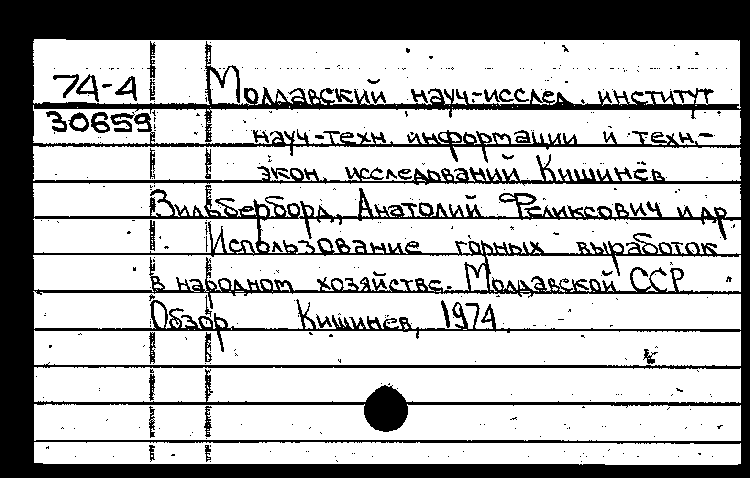 74-4 Молдавский науч.-исслед. институт
30659 науч-техн. информации и техн.-
экон. исследований Кишинёв
Зильберборд, Анатолий Феликсович и др.
Использование горных выработок
в народном хозяйстве Молдавской ССР
Обзор. Кишинев, 1974.